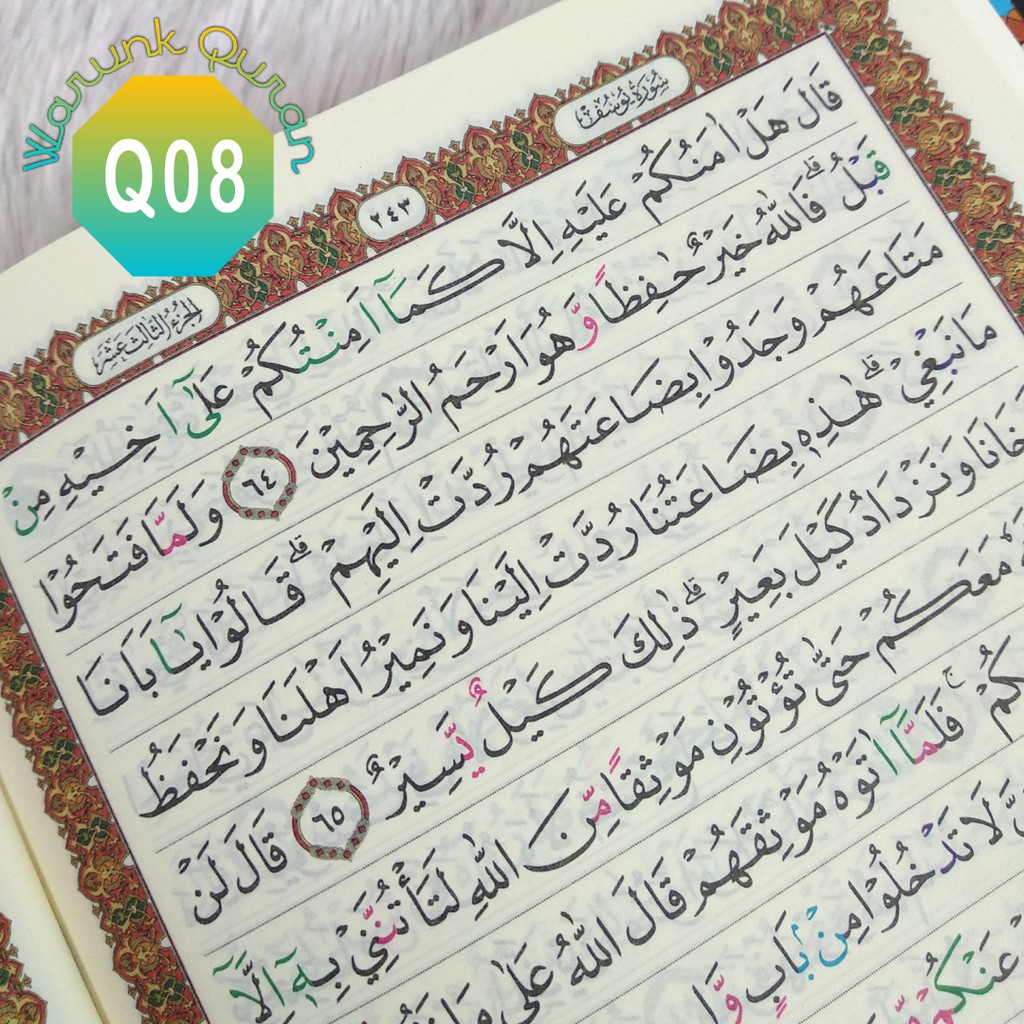 Warunk Quran
Q08
سُوْرَةُ يُوسُفَ
٢٤٣
الجُزْءُ الثَّالِثَ عَشَرَ
قَالَ هَلْ اٰمَنُكُمْ عَلَيْهِ اِلَّا كَمَآ اَمِنْتُكُمْ عَلٰٓى اَخِيْهِ مِنْ
قَبْلُۗ فَاللّٰهُ خَيْرٌ حٰفِظًا وَّهُوَ اَرْحَمُ الرّٰحِمِيْنَ ٦٤ وَلَمَّا فَتَحُوْا
مَتَاعَهُمْ وَجَدُوْا بِضَاعَتَهُمْ رُدَّتْ اِلَيْهِمْۗ قَالُوْا يٰٓاَبَانَا
مَا نَبْغِيْۗ هٰذِهٖ بِضَاعَتُنَا رُدَّتْ اِلَيْنَا وَنَمِيْرُ اَهْلَنَا وَنَحْفَظُ
خَانَا وَنَزْدَادُ كَيْلَ بَعِيْرٍۗ ذٰلِكَ كَيْلٌ يَّسِيْرٌ ٦٥ قَالَ لَنْ
مَعَكُمْ حَتّٰى تُؤْتُوْنِ مَوْثِقًا مِّنَ اللّٰهِ لَتَأْتُنَّنِيْ بِهٖٓ اِلَّآ
كُمْۚ فَلَمَّآ اٰتَوْهُ مَوْثِقَهُمْ قَالَ اللّٰهُ عَلٰى مَا
لَا تَدْخُلُوْا مِنْۢ بَابٍ وَّا
عَنْكُمْ